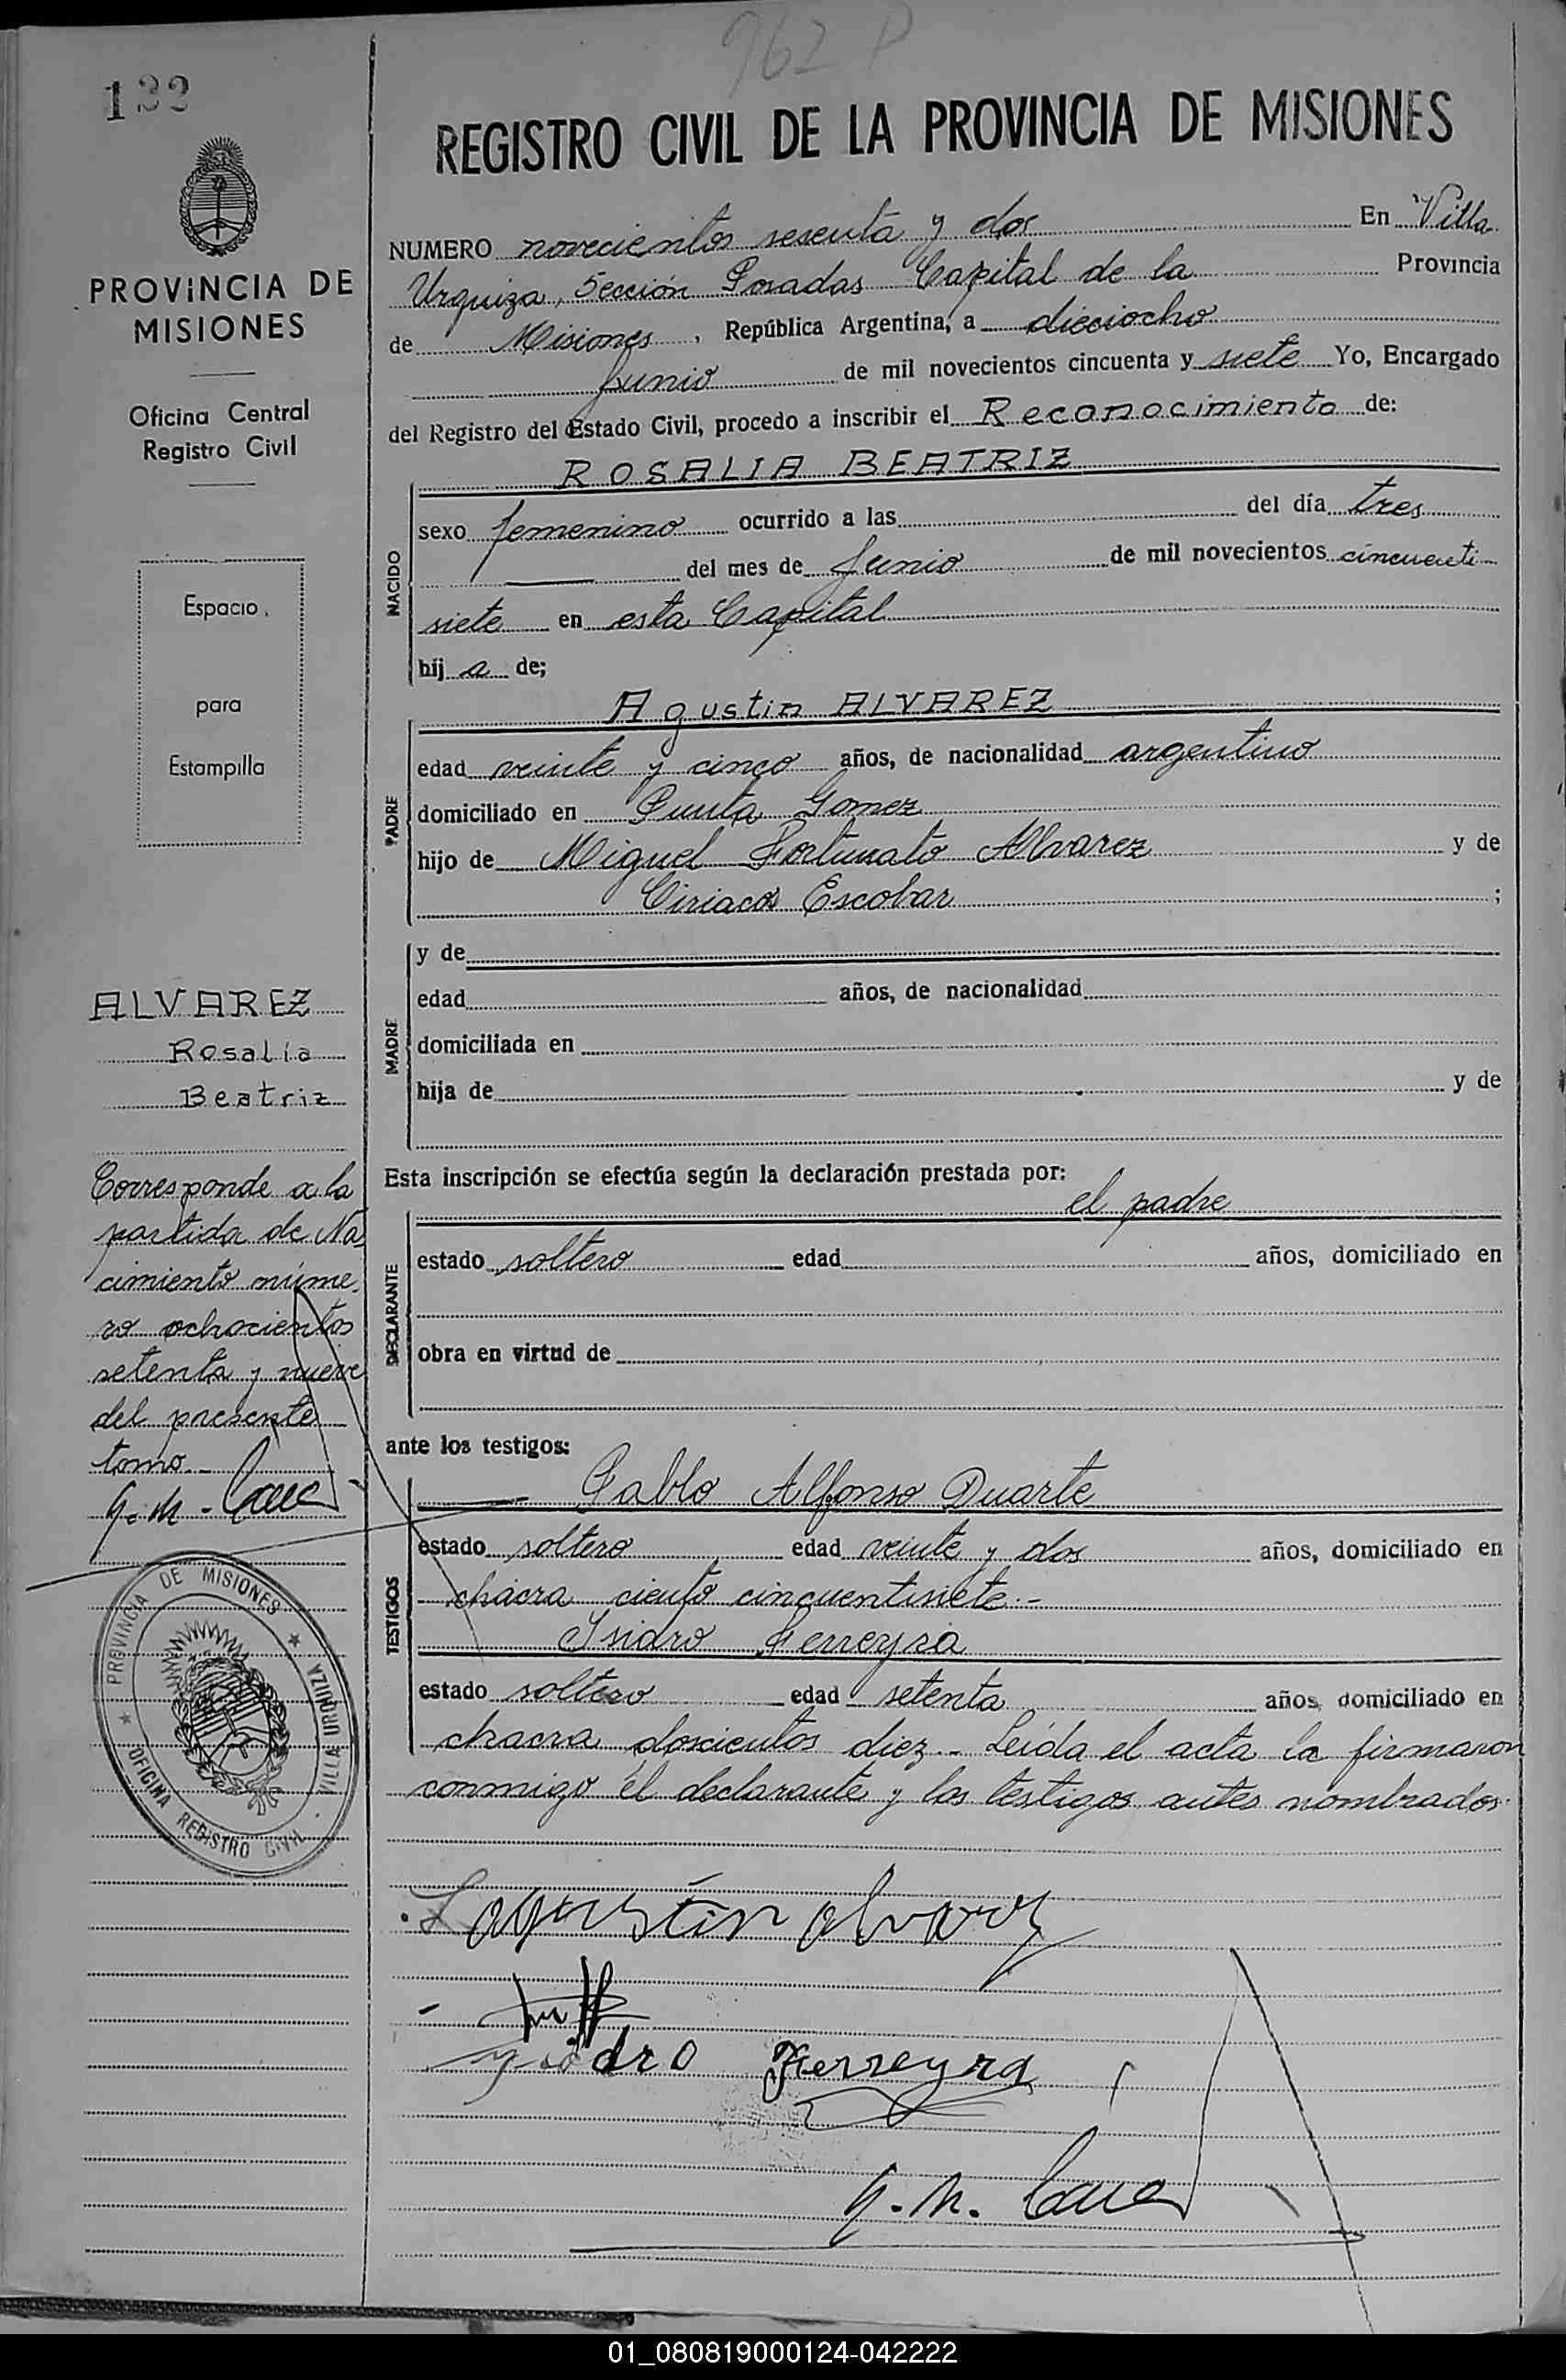 962 P
132
REGISTRO CIVIL DE LA PROVINCIA DE MISIONES
PROVINCIA DE
MISIONES
Oficina Central
Registro Civil
Espacio
para
Estampilla
ALVAREZ
Rosalía
Beatriz
Corresponde a la
partida de Na
cimiento núme
ro ochocientos
setenta y nueve
del presente
tomo.-
PROVINCIA DE MISIONES
OFICINA REGISTRO CIVIL
VILLA URQUIZA
NUMERO novecientos sesenta y dos En Villa
Urquiza, Sección Posadas Capital de la Provincia
de Misiones, República Argentina, a dieciocho
Junio de mil novecientos cincuenta y siete Yo, Encargado
del Registro del Estado Civil, procedo a inscribir el Reconocimiento de:
ROSALIA BEATRIZ
NACIDO
sexo femenino ocurrido a las del día tres
del mes de Junio de mil novecientos cincuenti-
siete en esta Capital
hij a de;
Agustin ALVAREZ
PADRE
edad veinte y cinco años, de nacionalidad argentino
domiciliado en Punta Gomez
hijo de Miguel Fortunato Alvarez y de
Escobar ;
MADRE
y de
edad años, de nacionalidad
domiciliada en
hija de y de
Esta inscripción se efectúa según la declaración prestada por:
el padre
DECLARANTE
estado soltero edad años, domiciliado en
obra en virtud de
ante los testigos:
Pablo Alfonso Duarte
TESTIGOS
estado soltero edad veinte y dos años, domiciliado en
chacra ciento cincuentisiete.-
Isidro Ferreyra
estado soltero edad setenta años, domiciliado en
chacra doscientos diez.- Leída el acta la firmaron
conmigo el declarante y los testigos antes nombrados.
agustin alvarez
Ysidro Ferreyra
01_080819000124-042222